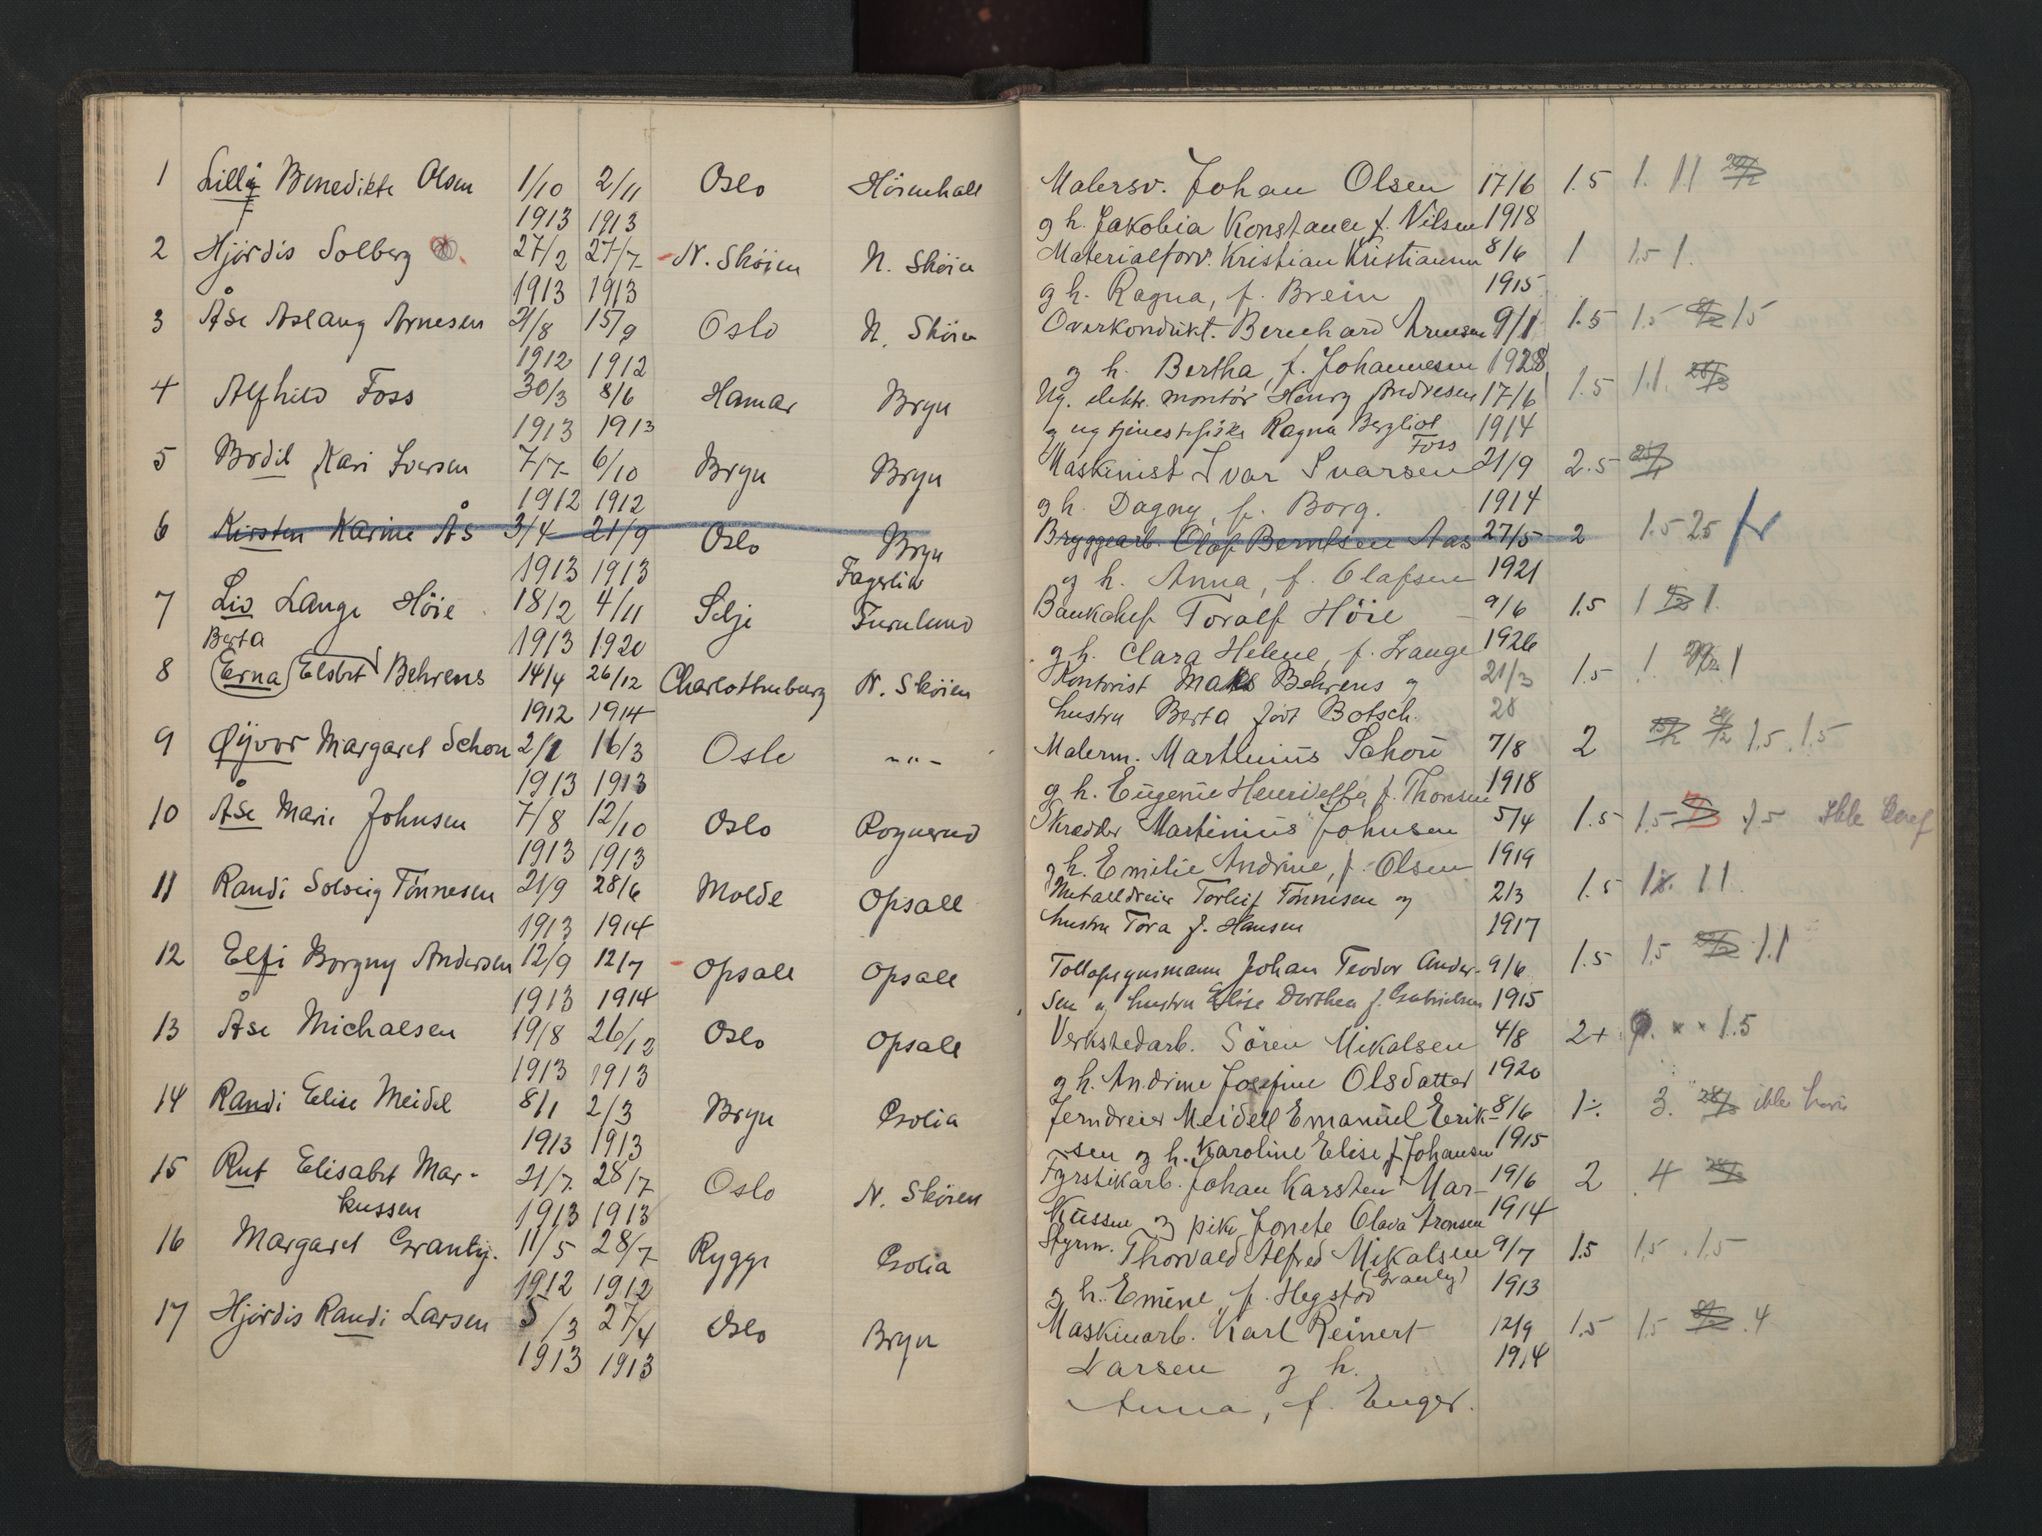 1 Lilly Benedikte Olsen 1/10 2/11 Oslo Hörenhall Malersv. Johan Olsen 17/6 1.5 1. 1.1
1913 1913 g h. Jakobia Konstance f. Nilsen 1918
2 Hjördis Solberg 27/2 27/7 N. Skøien N. Skøien Materialforv. Kristian Kristiansen 8/6 1 1.5 1.
1913 1913 g h. Ragna, f. Brein 1915
3 Åse Aslaug Arnesen 21/8 15/9 Oslo N. Skøien Overkondukt. Bernhard Arnesen 9/1 1.5 1.5 1.5
1912 1912 g h. Bertha, f. Johannesen 1928
4 Alfhild Foss 30/3 8/6 Hamar Bryn Ug. elektr. montör Henry Andresen 17/6 1.5 1.1.
1913 1913 g ug tjenestepike Ragna Bergliot Foss 1914
5 Bodil Kari Ivarsen 7/7 6/10 Bryn Bryn Maskinist Ivar Ivarsen 21/9 2.5
1912 1912 g h. Dagny, f. Borg. 1914
6 Kirsten Karine Ås 3/4 21/9 Oslo Bryn Bryggearb. Olaf Berntsen Aas 27/5 2 1.5 2.5 fr
1913 1913 g h. Anna, f. Olafsen 1921
Fagerlia
7 Liv Lange Höie 18/2 4/11 Selje Furulund Banksjef Toralf Höie 9/6 1.5 1 1.
Berta 1913 1920 g h. Clara Helene, f. Lange 1926
8 (Erna) Elsbet Behrens 14/4 26/12 Charlottenburg N. Skøien Kontorist Maks Behrens g 21/3 1.5 1. 1
1912 1914 hustru Berta född Botsch. 28
9 Øyvor Margaret Schou 2/1 16/3 Oslo -"- Malerm. Marthinius Schou 7/8 2 1.5. 1.5
1913 1913 g h. Eugenie Henriette, f. Thonsen 1918
10 Åse Marie Johnsen 7/8 12/10 Oslo Rognerud Skredder Martinius Johnsen 5/4 1.5 1.5 1.5 Ikke
1913 1913 g h. Emilie Andrine, f. Olsen 1919
11 Randi Solveig Tönnesen 21/9 28/6 Molde Opsall Metalldreier Torleif Tönnesen og 2/3 1.5 1.1
1913 1914 hustru Tora f. Hansen 1917
12 Elfi Borgny Andersen 12/9 12/7 Opsall Opsall Tollopsynsmann Johan Teodor Ander- 9/6 1.5 1.5 1.1
1913 1914 sen og hustru Elise Dorthea f. Gabrielsen 1915
13 Åse Michalsen 19/8 26/12 Oslo Opsall Verkstedarb. Sören Mikalsen 4/8 2+ x x 1.5
1913 1913 g h. Andrine Josefine Olsdatter 1920
14 Randi Elise Meidel 8/1 2/3 Bryn Solia Jerndreier Meidell Emanuel Erik- 8/6 1÷ 3. ikke
1913 1913 -sen og h. Karoline Elise f. Johansen 1915
15 Rut Elisabet Mar- 21/7 28/7 Oslo N. Skøien Fyrstikarb. Johan Karsten Mar- 19/6 2 4
kussen 1913 1913 kussen og pike Jonete Olava Aronsen 1914
16 Margaret Granly. 11/5 28/7 Rygge Solia Styrm. Thorvald Alfred Mikalsen 9/7 1.5 1.5 . 1.5
(Granly)
1912 1912 g h. Emine, f. Hegstad 1913
17 Hjördis Randi Larsen 5/3 27/4 Oslo Bryn Maskinarb. Karl Reinert 12/9 1.5 1.5 .4
1913 1913 Larsen g h. 1914
Anna, f. Enger.